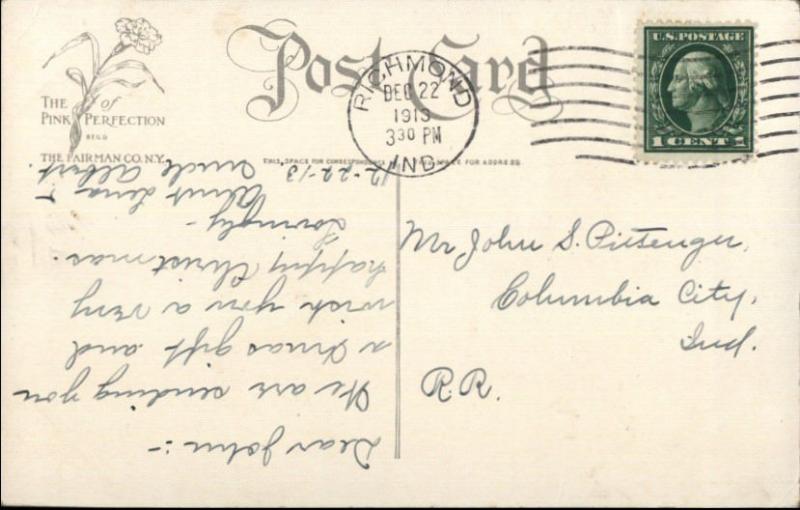 THE of
PINK PERFECTION
REG'D
THE FAIRMAN CO. N.Y.
Post Card
RICHMOND
DEC 22
1913
3 30 PM
IND.
U.S. POSTAGE
1 CENT 1
THIS SPACE FOR CORRESPONDENCE
FOR ADDRESS
12-22-13
Dear John:-
We are sending you
a Xmas gift and
wish you a very
happy Christmas.
Lovingly-
Aunt Lena &
Uncle Albert.
Mr John S. Pittenger,
Columbia City,
Ind.
R.R.